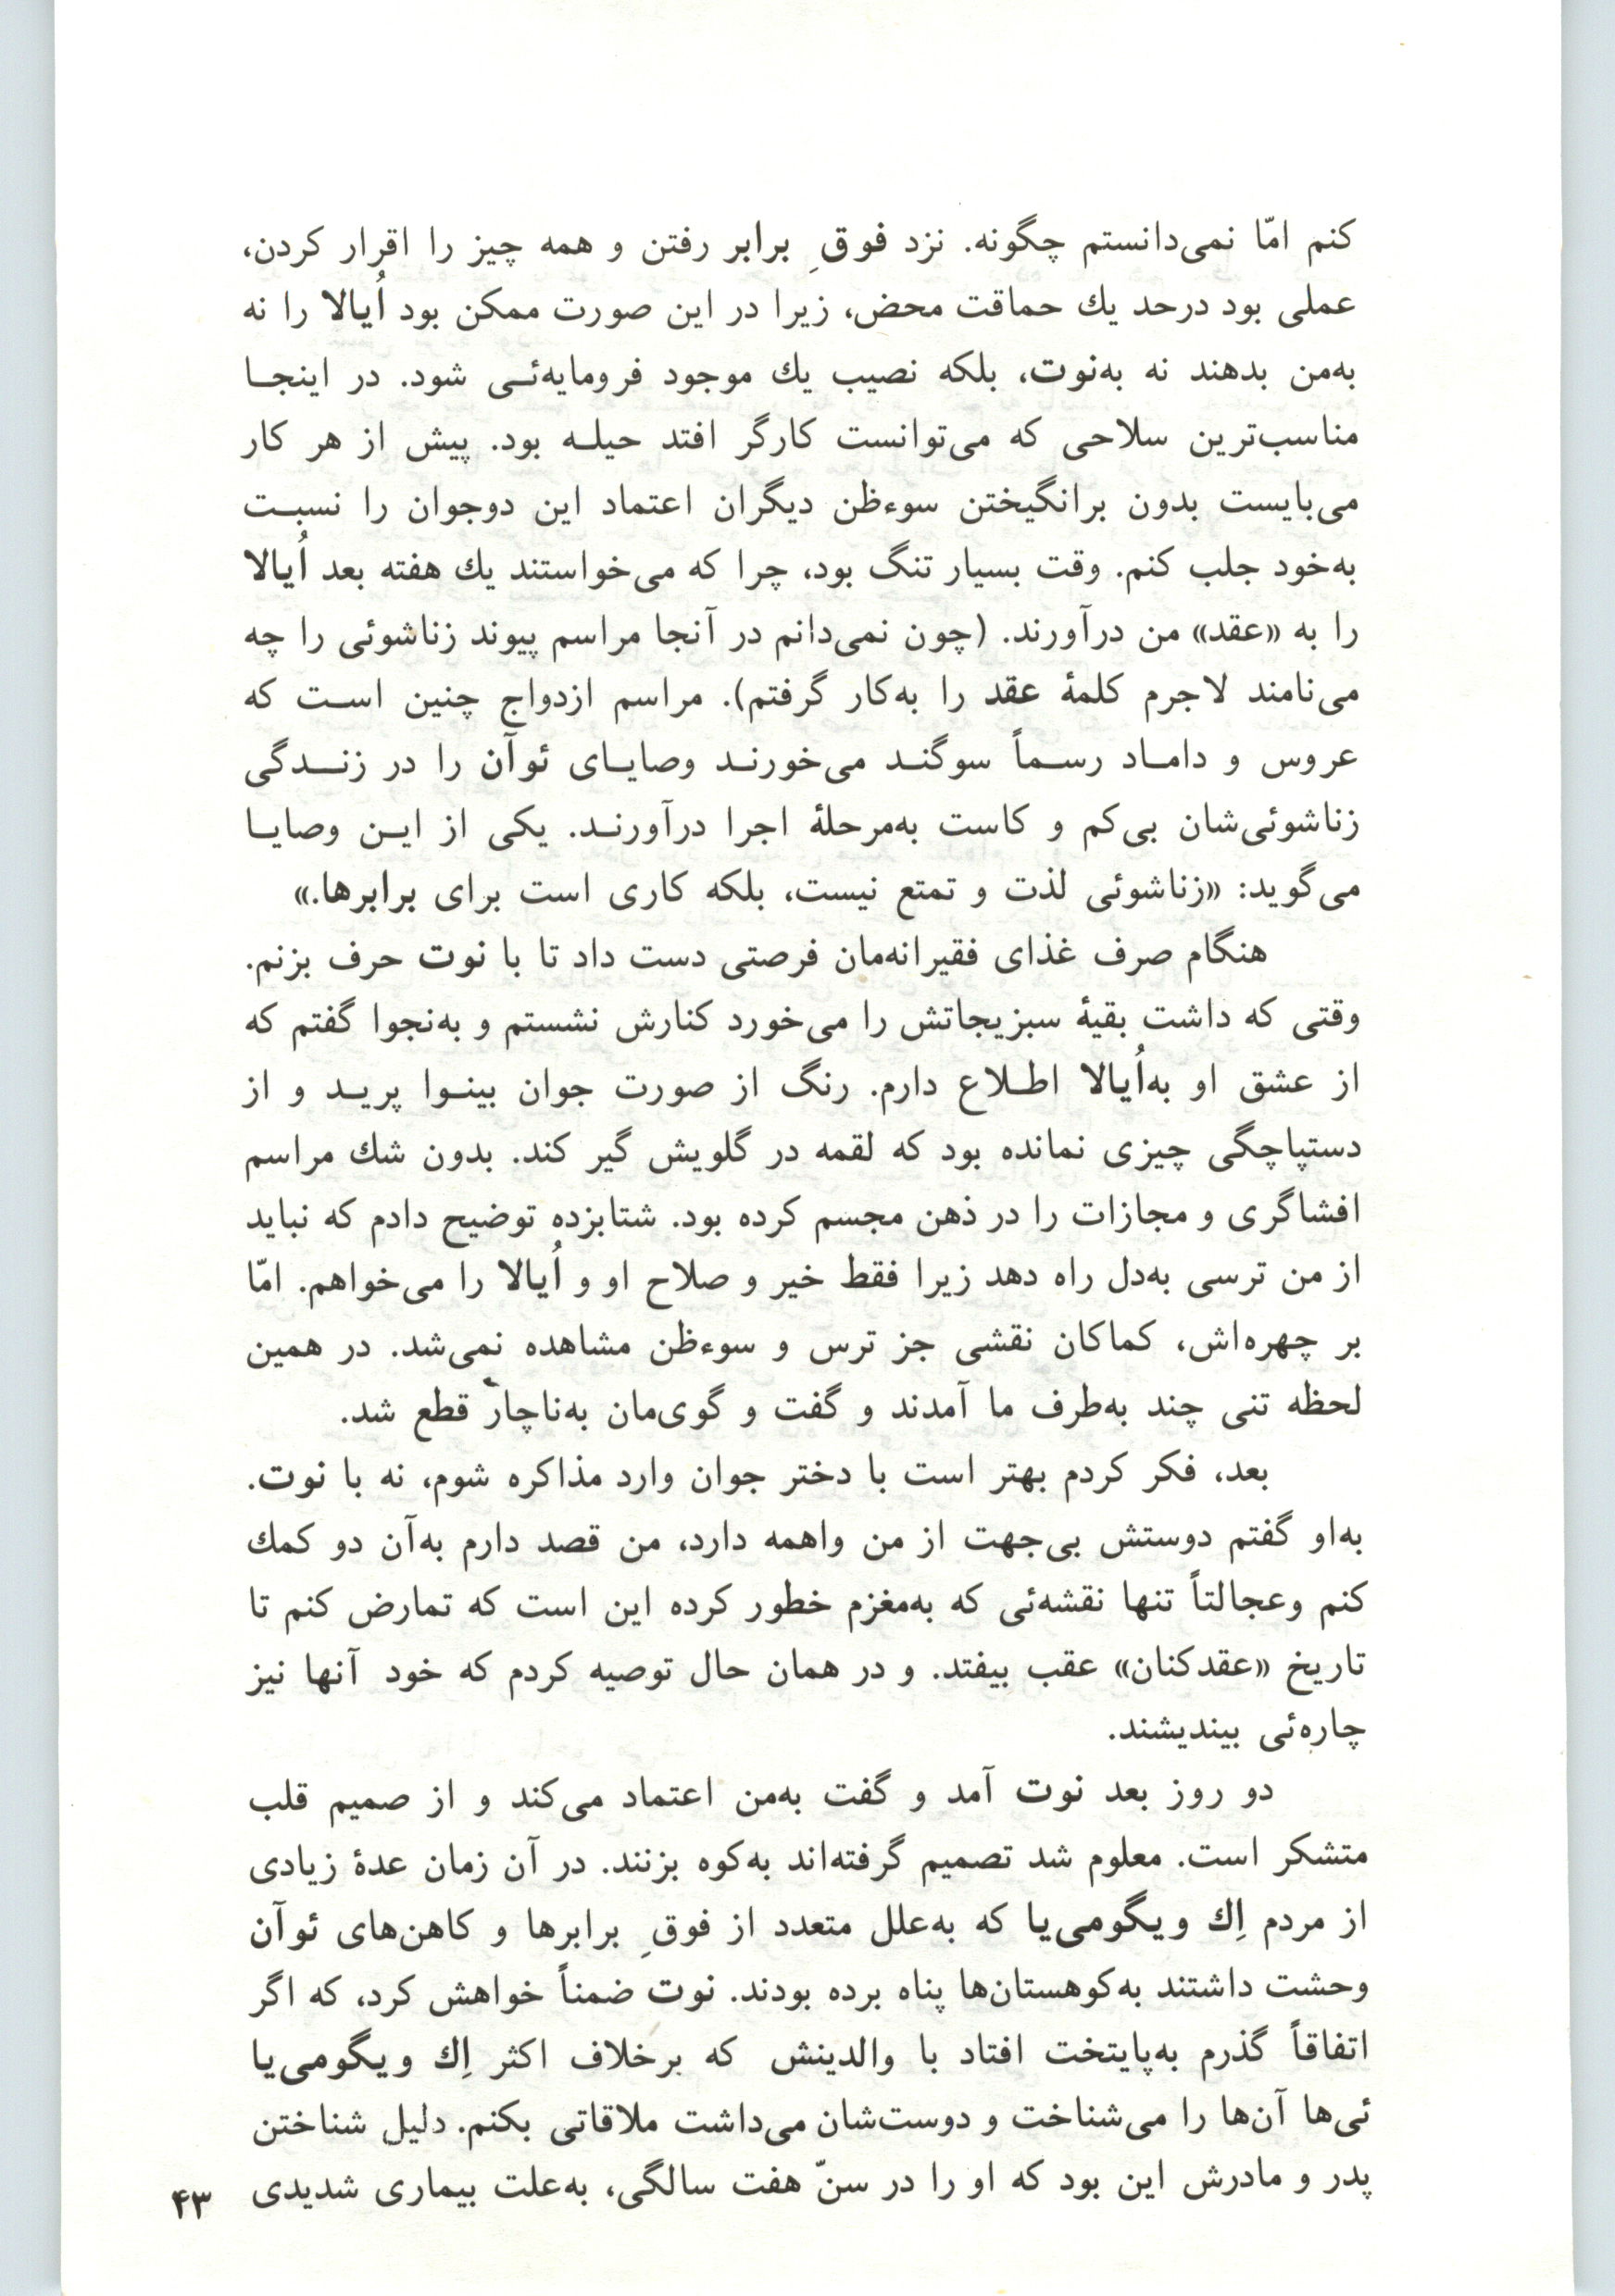 کنم امّا نمی‌دانستم چگونه. نزد فوقِ برابر رفتن و همه چیز را اقرار کردن،
عملی بود درحد یك حماقت محض، زیرا در این صورت ممکن بود اُیالا را نه
به‌من بدهند نه به‌نوت، بلکه نصیب یك موجود فرومایه‌ئـی شود. در اینجـا
مناسب‌ترین سلاحی که می‌توانست کارگر افتد حیلـه بود. پیش از هر کار
می‌بایست بدون برانگیختن سوءظن دیگران اعتماد این دوجوان را نسبـت
به‌خود جلب کنم. وقت بسیار تنگ بود، چرا که می‌خواستند یك هفته بعد اُیالا
را به «عقد» من درآورند. (چون نمی‌دانم در آنجا مراسم پیوند زناشوئی را چه
می‌نامند لاجرم کلمهٔ عقد را به‌کار گرفتم). مراسم ازدواج چنین اسـت که
عروس و دامـاد رسـماً سوگنـد می‌خورنـد وصایـای ئوآن را در زنـــدگی
زناشوئی‌شان بی‌کم و کاست به‌مرحلهٔ اجرا درآورنـد. یکی از ایـن وصایـا
می‌گوید: «زناشوئی لذت و تمتع نیست، بلکه کاری است برای برابرها.»
هنگام صرف غذای فقیرانه‌مان فرصتی دست داد تا با نوت حرف بزنم.
وقتی که داشت بقیهٔ سبزیجاتش را می‌خورد کنارش نشستم و به‌نجوا گفتم که
از عشق او به‌اُیالا اطـلاع دارم. رنگ از صورت جوان بینـوا پریـد و از
دستپاچگی چیزی نمانده بود که لقمه در گلویش گیر کند. بدون شك مراسم
افشاگری و مجازات را در ذهن مجسم کرده بود. شتابزده توضیح دادم که نباید
از من ترسی به‌دل راه دهد زیرا فقط خیر و صلاح او و اُیالا را می‌خواهم. امّا
بر چهره‌اش، کماکان نقشی جز ترس و سوءظن مشاهده نمی‌شد. در همین
لحظه تنی چند به‌طرف ما آمدند و گفت و گوی‌مان به‌ناچار قطع شد.
بعد، فکر کردم بهتر است با دختر جوان وارد مذاکره شوم، نه با نوت.
به‌او گفتم دوستش بی‌جهت از من واهمه دارد، من قصد دارم به‌آن دو کمك
کنم وعجالتاً تنها نقشه‌ئی که به‌مغزم خطور کرده این است که تمارض کنم تا
تاریخ «عقدکنان» عقب بیفتد. و در همان حال توصیه کردم که خود آنها نیز
چاره‌ئی بیندیشند.
دو روز بعد نوت آمد و گفت به‌من اعتماد می‌کند و از صمیم قلب
متشکر است. معلوم شد تصمیم گرفته‌اند به‌کوه بزنند. در آن زمان عدهٔ زیادی
از مردم اِك ویگومی‌یا که به‌علل متعدد از فوقِ برابرها و کاهن‌های ئوآن
وحشت داشتند به‌کوهستان‌ها پناه برده بودند. نوت ضمناً خواهش کرد، که اگر
اتفاقاً گذرم به‌پایتخت افتاد با والدینش که برخلاف اکثر اِك ویگومی‌یا
ئی‌ها آن‌ها را می‌شناخت و دوست‌شان می‌داشت ملاقاتی بکنم. دلیل شناختن
پدر و مادرش این بود که او را در سنّ هفت سالگی، به‌علت بیماری شدیدی
۴۳